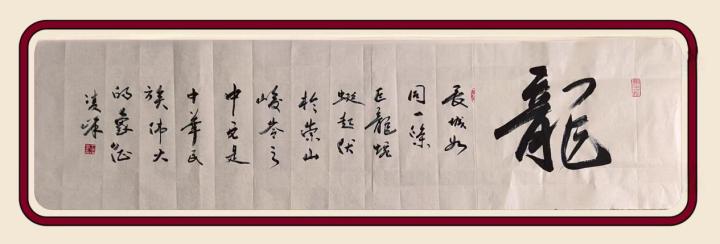 龍
長城如
同一條
巨龍蜿
蜒起伏
於崇山
峻岺之
中它是
中華民
族偉大
的象征
凌